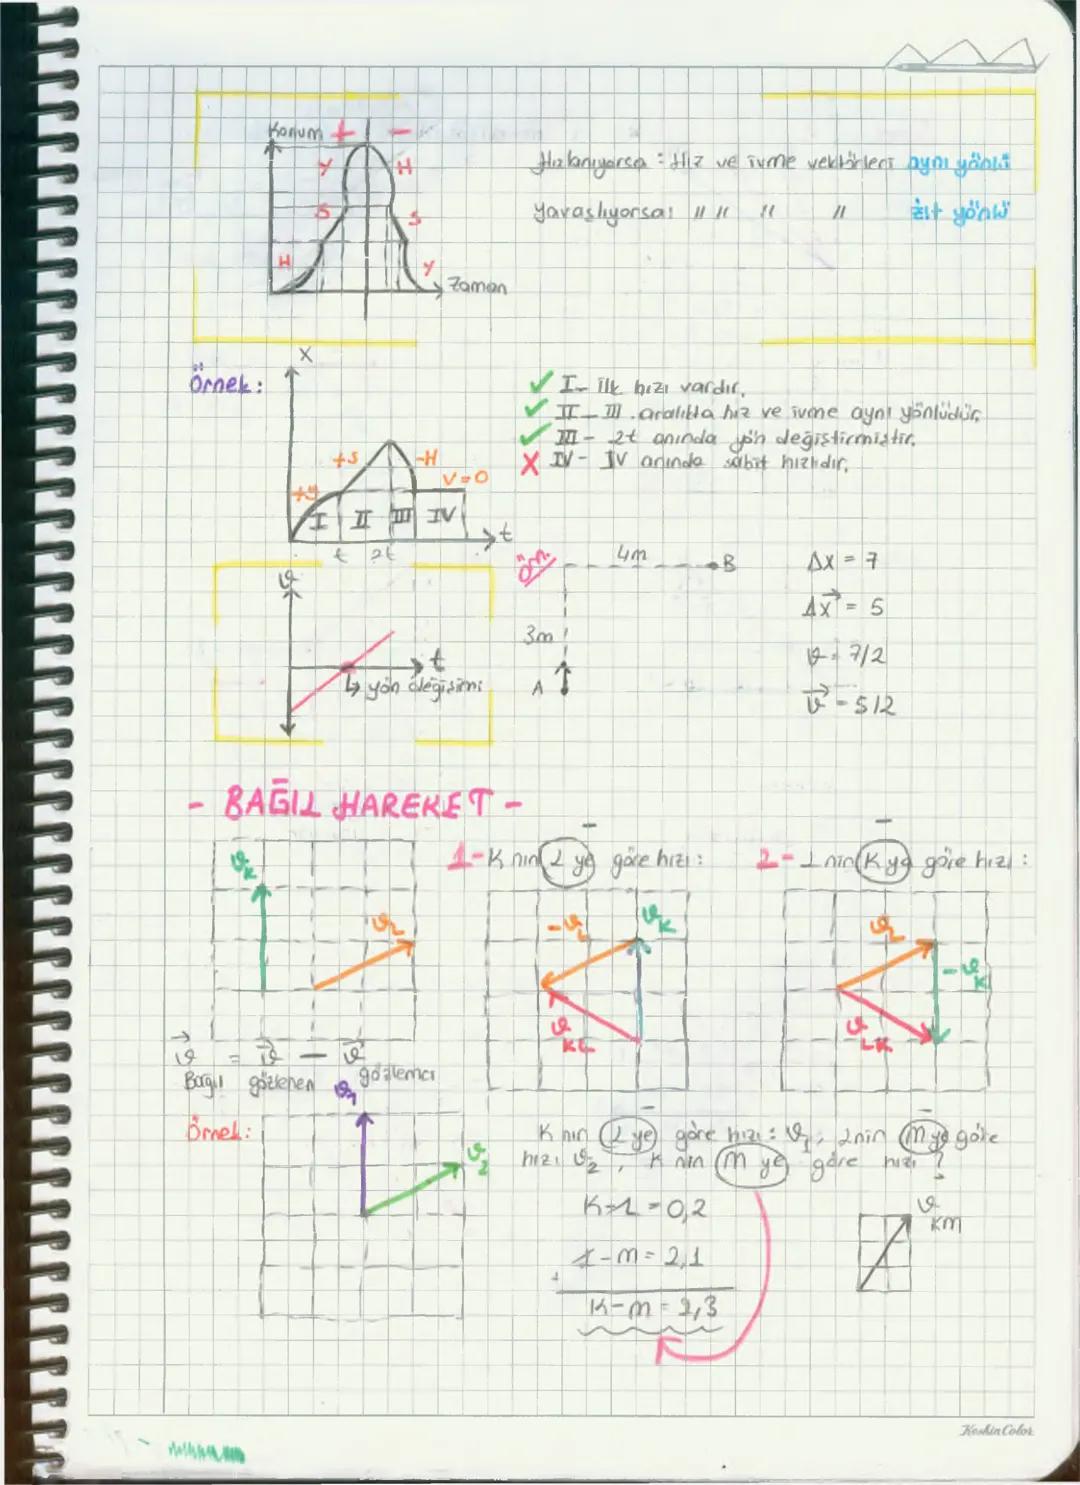 Konum + -
Y H
S S
H Y
Zaman
Hızlanıyorsa : Hız ve ivme vektörleri aynı yönlü
Yavaşlıyorsa: " " " " zıt yönlü
Örnek:
X
+S -H
+Y V=0
I II III IV
t 2t
t
✓ I- İlk hızı vardır.
✓ II- III. aralıkta hız ve ivme aynı yönlüdür.
✓ III- 2t anında yön değiştirmiştir.
X IV- IV anında sabit hızlıdır.
ϑ
t
↳ yön değişimi
Örn.
4m
B
3m
A
Δx = 7
Δx⃗ = 5
ϑ = 7/2
ϑ⃗ = 5/2
- BAĞIL HAREKET -
ϑK
ϑL
1- K nın L ye göre hızı :
-ϑL ϑK
ϑKL
2- L nin K ya göre hızı :
ϑL
-ϑK
ϑLK
ϑ⃗ = ϑ⃗ - ϑ⃗
Bağıl gözlenen gözlemci
Örnek:
ϑ1
ϑ2
K nın L ye göre hızı : ϑ1, L nin M ye göre
hızı ϑ2, K nın M ye göre hızı ?
K-L = 0,2
L-M = 2,1
+
K-M = 2,3
ϑ⃗KM
KeskinColor